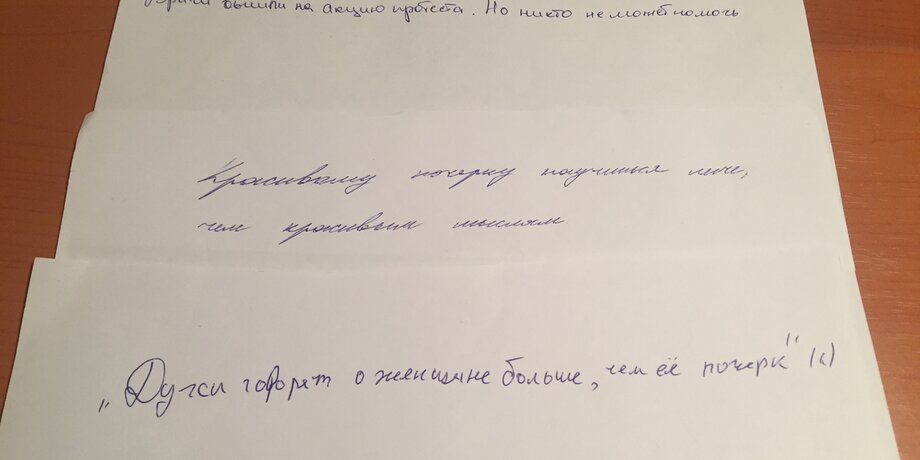 Врачи вышли на акцию протеста. Но никто не может помочь
Красивому почерку научиться легче,
чем красивым мыслям
„Духи говорят о женщине больше, чем её почерк" (с)